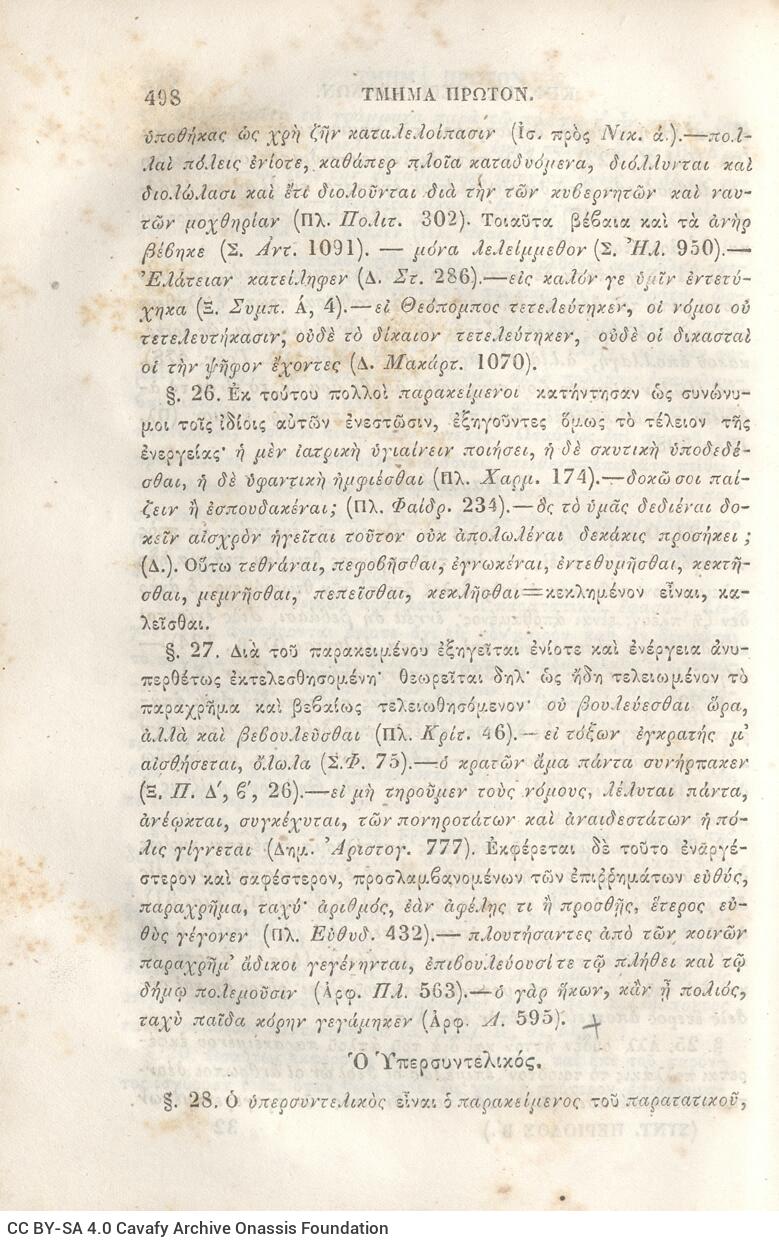 498 ΤΜΗΜΑ ΠΡΩΤΟΝ.
ὑποθήκας ὡς χρὴ ζῆν καταλελοίπασιν (Ἰσ. πρὸς Νικ. ά.).—πολ-
λαὶ πόλεις ἐνίοτε, καθάπερ πλοῖα καταδυόμενα, διόλλυνται καὶ
διολώλασι καὶ ἔτι διολοῦνται διὰ τὴν τῶν κυβερνητῶν καὶ ναυ-
τῶν μοχθηρίαν (Πλ. Πολιτ. 302). Τοιαῦτα βέβαια καὶ τὰ ἀνὴρ
βέβηκε (Σ. Ἀντ. 1091). — μόνα λελείμμεθον (Σ. Ἠλ. 950).—
Ἐλάτειαν κατείληφεν (Δ. Στ. 286).—εἰς καλόν γε ὑμῖν ἐντετύ-
χηκα (Ξ. Συμπ. Ά, 4).—εἰ Θεόπομπος τετελεύτηκεν, οἱ νόμοι οὐ
τετελευτήκασιν, οὐδὲ τὸ δίκαιον τετελεύτηκεν, οὐδὲ οἱ δικασταὶ
οἱ τὴν ψῆφον ἔχοντες (Δ. Μακάρτ. 1070).
§. 26. Ἐκ τούτου πολλοὶ παρακείμενοι κατήντησαν ὡς συνώνυ-
μοι τοῖς ἰδίοις αὐτῶν ἐνεστῶσιν, ἐξηγοῦντες ὅμως τὸ τέλειον τῆς
ἐνεργείας· ἡ μὲν ἰατρικὴ ὑγιαίνειν ποιήσει, ἡ δὲ σκυτικὴ ὑποδεδέ-
σθαι, ἡ δὲ ὑφαντικὴ ἠμφιέσθαι (Πλ. Χαρμ. 174).—δοκῶ σοι παί-
ζειν ἢ ἐσπουδακέναι; (Πλ. Φαίδρ. 234).—ὃς τὸ ὑμᾶς δεδιέναι δο-
κεῖν αἰσχρὸν ἡγεῖται τοῦτον οὐκ ἀπολωλέναι δεκάκις προσήκει ;
(Δ.). Οὕτω τεθνάναι, πεφοβῆσθαι, ἐγνωκέναι, ἐντεθυμῆσθαι, κεκτῆ-
σθαι, μεμνῆσθαι, πεπεῖσθαι, κεκλῆσθαι=κεκλημένον εἶναι, κα-
λεῖσθαι.
§. 27. Διὰ τοῦ παρακειμένου ἐξηγεῖται ἐνίοτε καὶ ἐνέργεια ἀνυ-
περθέτως ἐκτελεσθησομένη· θεωρεῖται δηλ· ὡς ἤδη τελειωμένον τὸ
παραχρῆμα καὶ βεβαίως τελειωθησόμενον· οὐ βουλεύεσθαι ὥρα,
ἀλλὰ καὶ βεβουλεῦσθαι (Πλ. Κρίτ. 46).—εἰ τόξων ἐγκρατής μ’
αἰσθήσεται, ὄλωλα (Σ.Φ. 75).—ὁ κρατῶν ἅμα πάντα συνήρπακεν
(Ξ. Π. Δ’, ϐ’, 26).—εἰ μὴ τηροῦμεν τοὺς νόμους, λέλυται πάντα,
ἀνέῳκται, συγκέχυται, τῶν πονηροτάτων καὶ ἀναιδεστάτων ἡ πό-
λις γίγνεται (Δημ. Ἀριστογ. 777). Ἐκφέρεται δὲ τοῦτο ἐναργέ-
στερον καὶ σαφέστερον, προσλαμβανομένων τῶν ἐπιῤῥημάτων εὐθύς,
παραχρῆμα, ταχύ· ἀριθμός, ἐὰν ἀφέλῃς τι ἢ προσθῇς, ἕτερος εὐ-
θὺς γέγονεν (Πλ. Εὐθυδ. 432).— πλουτήσαντες ἀπὸ τῶν κοινῶν
παραχρῆμ’ ἄδικοι γεγένηνται, ἐπιβουλεύουσίτε τῷ πλήθει καὶ τῷ
δήμῳ πολεμοῦσιν (Ἀρφ. Πλ. 563).—ὁ γὰρ ἥκων, κἂν ᾖ πολιός,
ταχὺ παῖδα κόρην γεγάμηκεν (Ἀρφ. Λ. 595).
Ὁ Ὑπερσυντελικός.
§. 28. Ὁ ὑπερσυντελικὸς εἶναι ὁ παρακείμενος τοῦ παρατατικοῦ,
CC BY-SA 4.0 Cavafy Archive Onassis Foundation